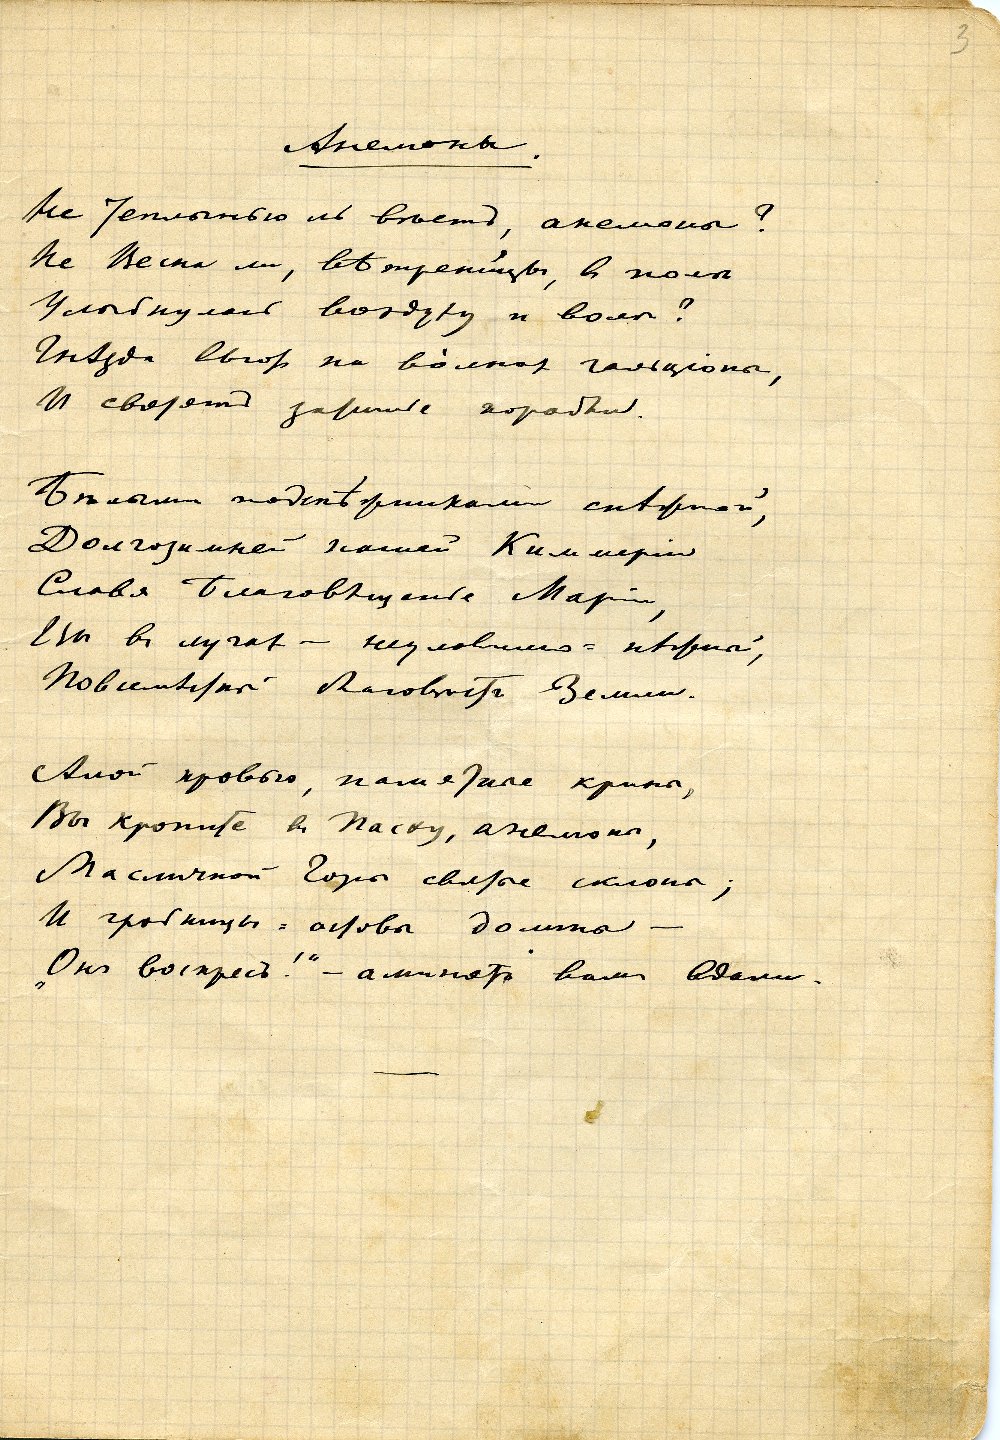 3
Анемоны.
Не Теплынью ль вѣетъ, анемоны?
Не Весна ли, вѣтреницы, въ полы
Улыбнулась воздуху и волы?
Гнѣзда вьютъ на волнахъ гальціоны,
И святятъ затишье корабли.
Бѣлыми подснѣжниками снѣжной,
Долгозимней нашей Киммеріи
Славя Благовѣщенье Маріи,
Вы въ лучахъ – неуловимо-нѣжны,
Повсемѣстны Благовѣсть Земли.
Алой кровью, памятные крины,
Вы кропите въ Пасху, анемоны,
Масличной Горы святые склоны;
И гробницы-остовы долины –
„Онъ воскресъ!“ – аминятъ вамъ вдали.